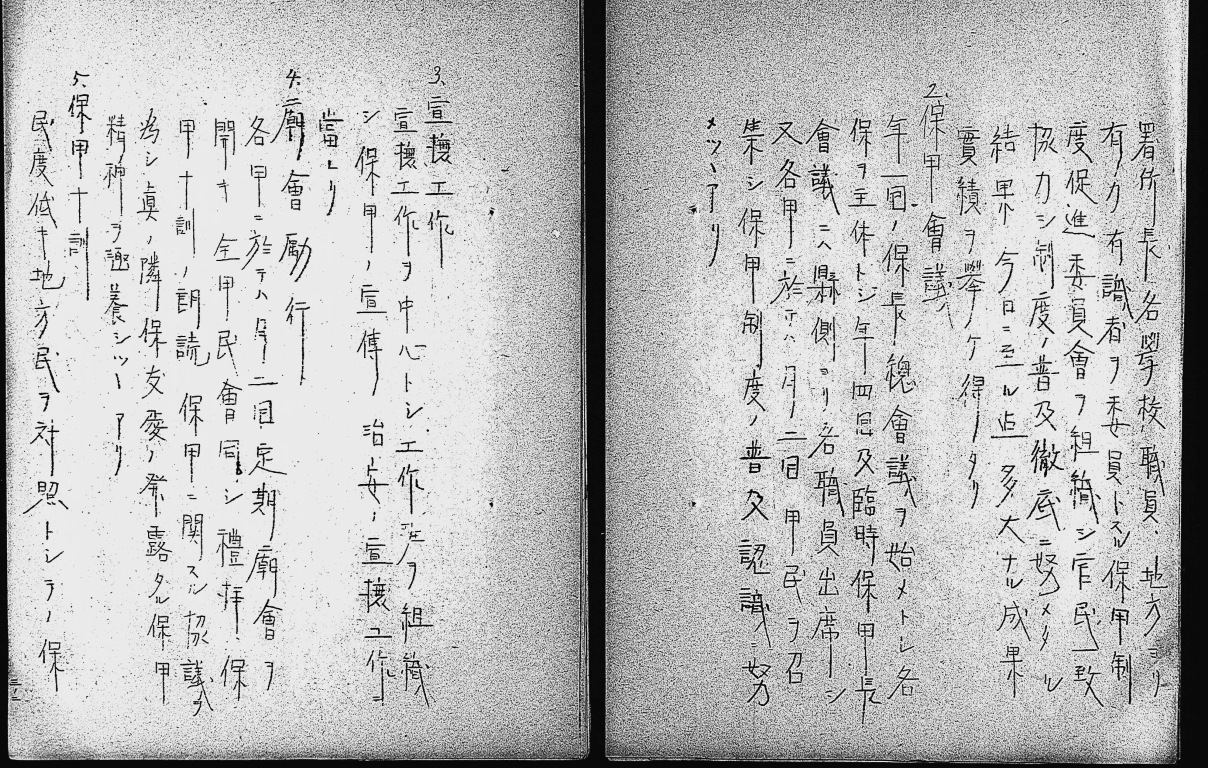 署所長各學校職員、地方ヨリ
有力有識者ヲ委員トスル保甲制
度促進委員會ヲ組織シ官民一致
協力シ制度ノ普及徹底ニ努メタル
結果今日ニ至ル迄多大ナル成果
實績ヲ擧ケ得タリ
2.保甲會議
年一回ノ保長總會議ヲ始メトシ各
保ヲ主体トシ年四回及臨時保甲長
會議ニハ縣側ヨリ各職員出席シ
又各甲ニ於テハ月ノ二回甲民ヲ召
集シ保甲制度ノ普及認識ニ努
メツヽアリ
3.宣撫工作
宣撫工作ヲ中心トシ工作班ヲ組織
シ保甲ノ宣傳ノ治安ノ宣撫工作ニ
當レリ
4.廟會勵行
各甲ニ於テハ月ノ二回定期廟會ヲ
開キ全甲民會同シ禮拜、保
甲十訓ノ朗読保甲ニ関スル協議ヲ
為シ真ノ隣保友愛ノ發露タル保甲
精神ヲ涵養シツヽアリ
5.保甲十訓
民度低キ地方民ヲ対照トシテノ保